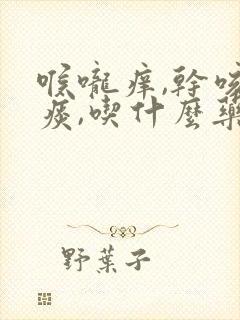 喉嚨痒,幹咳
痰,喫什麼藥
野葉子